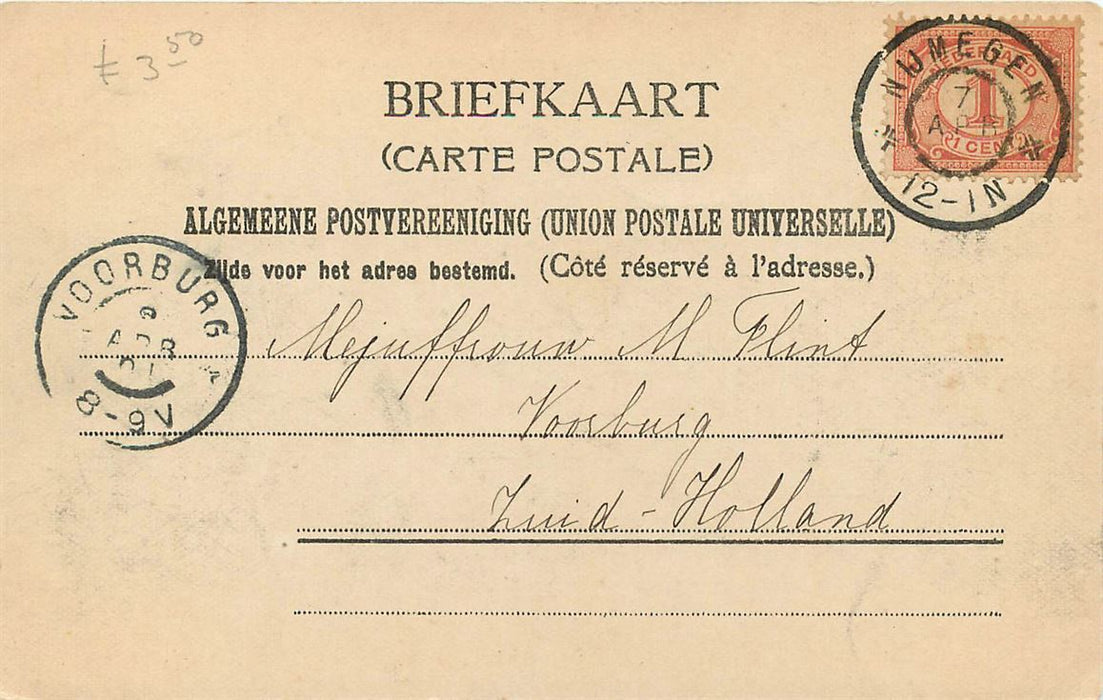 £ 3 50
BRIEFKAART
(CARTE POSTALE)
ALGEMEENE POSTVEREENIGING (UNION POSTALE UNIVERSELLE)
Zijde voor het adres bestemd. (Côté réservé à l'adresse.)
NIJMEGEN
7
APR
12-1N
NEDERLAND
1
1 CENT
VOORBURG
APR
8-9V
Mejuffrouw M Flint
Voorburg
Zuid-Holland